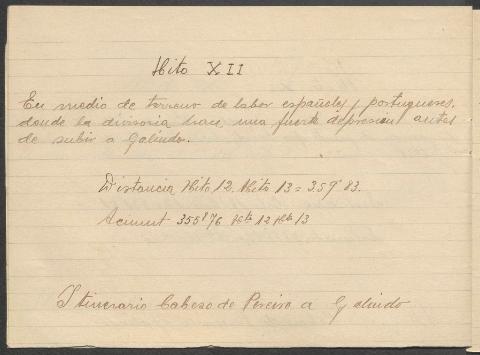 Hito XII
En medio de terreno de labor españoles y portugueses,
donde la divisoria hace una fuerte depresion antes
de subir a Galindo.
Distancia Hito 12. Hito 13 = 359 83.
355 876 Hto 12 Hto 13
Itinerario Cabeso de Pereiro a Galindo